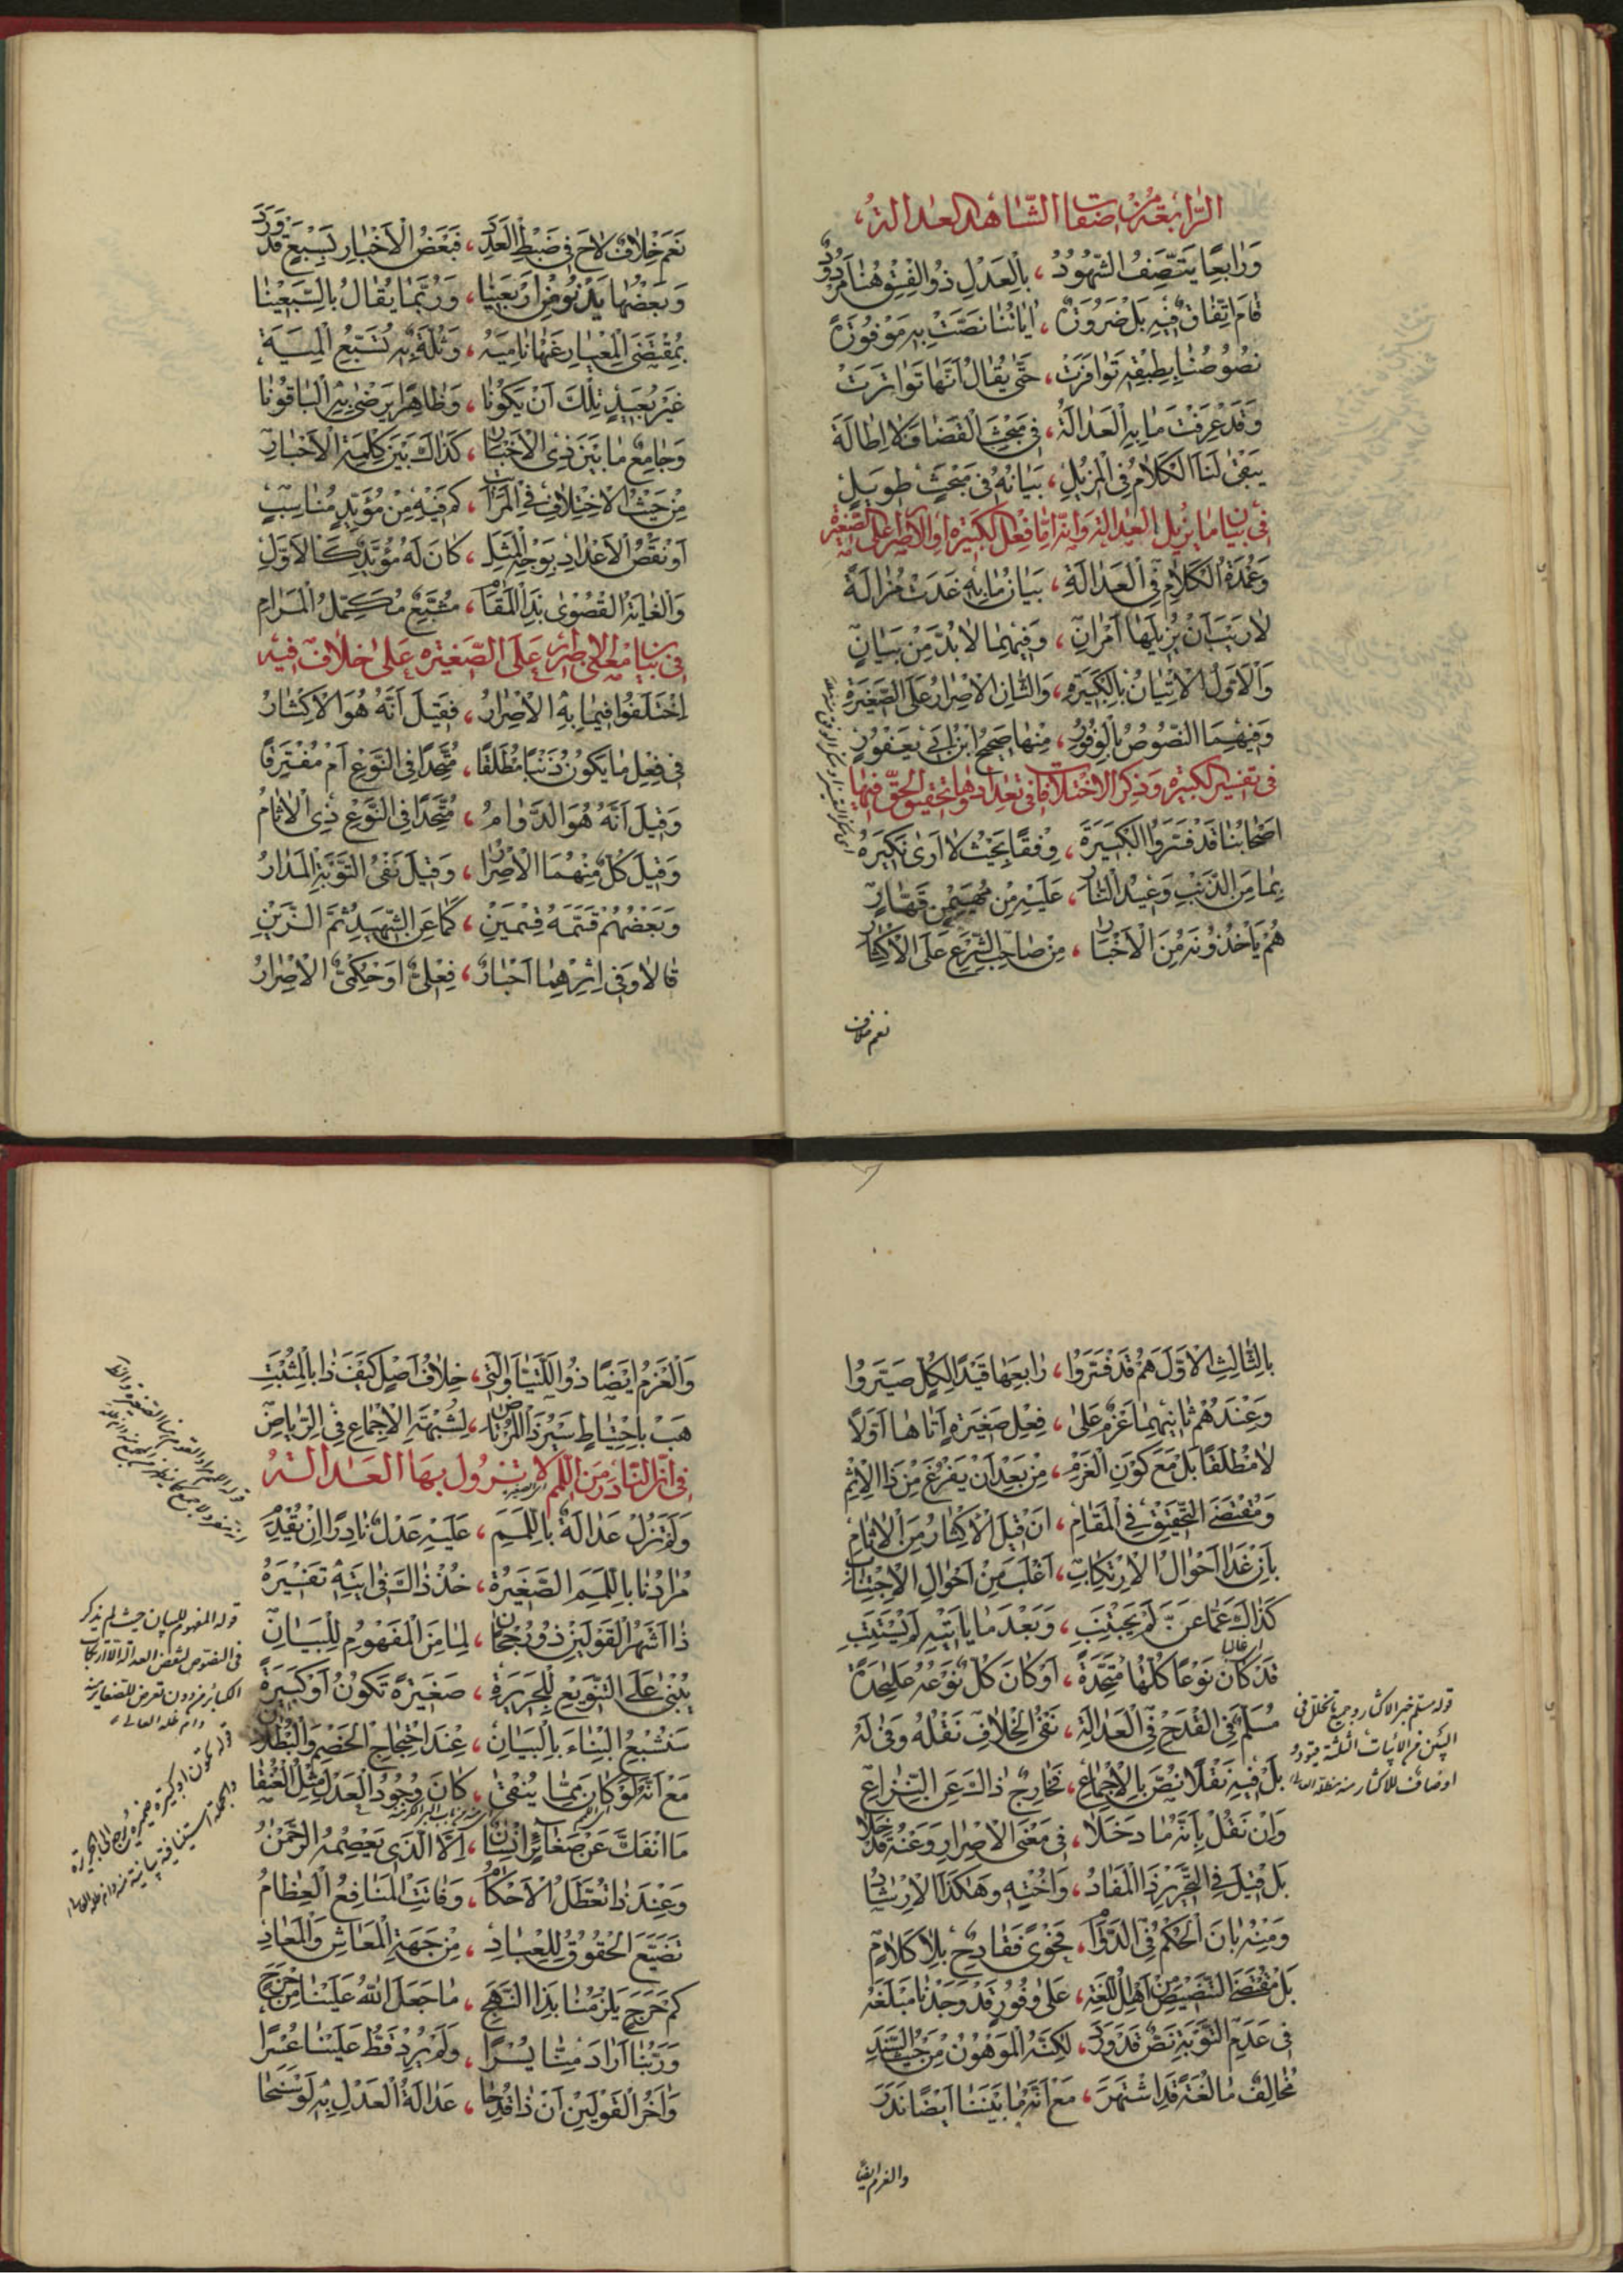 الرابعة من صفات الشاهد العدالة،
وَرَابِعًا يَتَّصِفُ الشُّهُودُ، بِالْعَدْلِ ذُو الْفِسْقِ هُنَا مَرْدُودُ
قَامَ اتِّفَاقٌ فِيهِ بَلْ ضَرُورَةً، اٰيَاتُنَا نَصَّتْ بِهِ مَوْفُورَةً
نُصُوصُنَا بِطِبْقِهِ تَوَافَرَتْ، حَتَّى يُقَالُ أَنَّهَا تَوَاتَرَتْ
وَقَدْ عَرَفْتَ مَا بِهِ الْعَدَالَةُ، فِي مَبْحَثِ الْقَضَا فَلَا إِطَالَةَ
يَبْقَى لَنَا الْكَلَامُ فِي الْمُزِيلِ، بَيَانُهُ فِي مَبْحَثٍ طَوِيلٍ
في بيان ما يزيل العدالة وانه اما فعل الكبيرة او الاصرار على الصغيرة
وَعُمْدَةُ الْكَلَامِ فِي الْعَدَالَةِ، بَيَانُ مَا بِهِ غَدَتْ مُزَالَةً
لَا رَيْبَ أَنْ يُزِيلَهَا أَمْرَانِ، وَفِيهِمَا لَا بُدَّ مِنْ بَيَانٍ
وَالْأَوَّلُ الْإِتْيَانُ بِالْكَبِيرَةِ، وَالثَّانِ الْإِصْرَارُ عَلَى الصَّغِيرَةِ
وَفِيهِمَا النُّصُوصُ بِالْوُفُورِ، مِنْهَا صَحِيحُ ابْنِ أَبِي يَعْفُورٍ
في تفسير الكبيرة وذكر الاختلاف في تعدادها وتحقيق الحق فيها
أَصْحَابُنَا قَدْ فَسَّرُوا الْكَبِيرَةَ، وِفْقًا بِحَيْثُ لَا أَرَى نَكِيرَهُ
بِمَا مِنَ الذَّنْبِ وَعِيدُ النَّارِ، عَلَيْهِ مِنْ مُهَيْمِنٍ قَهَّارٍ
هُمْ يَأْخُذُونَهُ مِنَ الْأَخْبَارِ، مِنْ صَاحِبِ الشَّرْعِ عَلَى الْإِكْثَارِ
نعم خلاف
نَعَمْ خِلَافٌ لَاحَ فِي ضَبْطِ الْعَدَدِ، فَبَعْضُ الْأَخْبَارِ بِسَبْعٍ قَدْ وَرَدَ
وَبَعْضُهَا يَدْنُو مِنْ أَرْبَعِينَا، وَرُبَّمَا يُقَالُ بِالسَّبْعِينَا
بِمُقْتَضَى الْمِعْيَارِ عَنْهَا نَامِيَهْ، وَثُلَّةٌ بِهِ
غَيْرُ بَعِيدٍ تِلْكَ أَنْ يَكُونَا، وَظَاهِرًا يَرْضَى بِهِ الْبَاقُونَا
وَجَامِعٌ مَا بَيْنَ ذِي الْأَخْبَارِ، كَذَاكَ بَيْنَ كَلِمَةِ الْأَخْبَارِ
مِنْ حَيْثُ الْاِخْتِلَافِ فِي الْمَرَاتِبِ، كَمْ فِيهِ مِنْ مُؤَيِّدٍ مُنَاسِبٍ
أَوْ نَقْصُ الْأَعْدَادِ بِوَجْهِ الْمَثَلِ، كَانَ لَهُ مُؤَيِّدٌ كَالْأَوَّلِ
وَالْغَايَةُ الْقُصْوَى بِذَا الْمَقَامِ، مُشَبَّعٌ مُكَمِّلُ الْمَرَامِ
في بيان معنى الاصرار على الصغيرة على خلاف فيه
اِخْتَلَفُوا فِيمَا بِهِ الْإِصْرَارُ، فَقِيلَ أَنَّهُ هُوَ الْإِكْثَارُ
فِي فِعْلِ مَا يَكُونُ ذَنْبًا مُطْلَقًا، مُتَّحِدًا فِي النَّوْعِ أَمْ مُفْتَرِقًا
وَقِيلَ أَنَّهُ هُوَ الدَّوَامُ، مُتَّحِدًا فِي النَّوْعِ ذِي الْآثَامُ
وَقِيلَ كُلٌّ مِنْهُمَا الْإِصْرَارُ، وَقِيلَ نَفْيُ التَّوْبَةِ الْمَدَارُ
وَبَعْضُهُمْ قَسَّمَهُ قِسْمَيْنِ، كَمَا عَنِ الشَّهِيدِ ثُمَّ الزَّيْنِ
قَالَا وَفِي إِثْرِهِمَا أَحْبَارٌ، فِعْلِيٌّ أَوْ حُكْمِيٌّ الْإِصْرَارُ
بِالثَّالِثِ الْأَوَّلَ هُمْ قَدْ فَسَّرُوا، رَابِعَهَا قَيْدًا لِكُلٍّ صَيَّرُوا
وَعِنْدَهُمْ ثَانِيهِمَا عَزْمٌ عَلَى، فِعْلِ صَغِيرَةٍ أَتَاهَا أَوَّلًا
لَا مُطْلَقًا بَلْ مَعَ كَوْنِ الْعَزْمِ، مِنْ بَعْدِ أَنْ يَفْرُغَ مِنْ ذَا الْإِثْمِ
وَمُقْتَضَى التَّحْقِيقِ فِي الْمَقَامِ، أَنْ قِيلَ الْإِكْثَارُ مِنَ الْآثَامِ
بِأَنْ غَدَا أَحْوَالُ الْاِرْتِكَابِ، أَغْلَبَ مِنْ أَحْوَالِ الْاِجْتِنَابِ
كَذَاكَ عَمَّا عَنَّ لَمْ يَجْتَنِبِ، وَبَعْدَ مَا يَأْتِيهِ لَمْ يَسْتَتِبِ
قَدْ كَانَ نَوْعًا كُلُّهَا مُتَّحِدَةً، أَوْ كَانَ كُلٌّ نَوْعُهُ عَلَى حِدَةٍ
مُسَلَّمٌ فِي الْقَدْحِ فِي الْعَدَالَةِ، نَفْيُ الْخِلَافِ نَقْلُهُ وَفَى لَهُ
بَلْ فِيهِ نَقْلًا نُصَّ بِالْإِجْمَاعِ، فَخَارِجٌ ذَاكَ عَنِ النِّزَاعِ
وَإِنْ نَقُلْ بِأَنَّهُ مَا دَخَلَا، فِي مَعْنَى الْإِصْرَارِ وَعَنْهُ قَدْ خَلَا
بَلْ قِيلَ فِي التَّحْرِيرِ ذَا الْمَفَادُ، وَأُخْتِهِ وَهَكَذَا الْإِرْشَادُ
وَمِنْهُ بَانَ الْحُكْمُ فِي الدَّوَامِ، فَحْوًى فَقَادِحٌ بِلَا كَلَامٍ
بَلْ مُقْتَضَى التَّنْصِيصِ مِنْ أَهْلِ اللُّغَةِ، عَلَى وُفُورٍ قَدْ وَجَدْنَا مَبْلَغَهُ
فِي عَدَمِ التَّوْبَةِ نَصٌّ قَدْ وَرَدَ، لَكِنَّهُ الْمَوْهُونُ مِنْ حَيْثُ السَّنَدِ
مُخَالِفٌ مَا لُغَةً قَدِ اشْتَهَرَ، مَعْ أَنَّهُ مَا بَيْنَنَا أَيْضًا نَدَرَ
والعزم ايضا
وَالْعَزْمُ أَيْضًا ذُو اللَّتَيَّا وَالَّتِي، خِلَافُ أَصْلٍ كَيْفَ ذَا بِالْمُثْبِتِ
هَبْ بِاحْتِيَاطٍ سَيْرُ ذَا الْمُرْتَاضِ، لِشُبْهَةِ الْإِجْمَاعِ فِي الرِّيَاضِ
في ان النادر من اللمم لا تزول بها العدالة
وَلَمْ تَزُلْ عَدَالَةٌ بِاللَّمَمِ، عَلَيْهِ عَدْلٌ نَادِرًا إِنْ يُقْدِمِ
مُرَادُنَا بِاللَّمَمِ الصَّغِيرَةُ، خُذْ ذَاكَ فِي إِتْيَانِهِ تَفْسِيرَهُ
ذَا أَشْهَرُ الْقَوْلَيْنِ ذُو رُجْحَانِ، لِمَا مِنَ الْمَفْهُومِ لِلْبَيَانِ
يُبْنَى عَلَى التَّنْوِيعِ لِلْجَرِيرَةِ، صَغِيرَةً تَكُونُ أَوْ كَبِيرَةً
سَنُشْبِعُ الْبِنَاءَ بِالْبَيَانِ، عِنْدَ احْتِجَاجِ الْخَصْمِ وَالْبُطْلَانِ
مَعْ أَنَّهُ لَوْ كَانَ مِمَّا يُنْتَفَى، كَانَ وُجُودُ الْعَدْلِ مِثْلَ الْعَنْقَا
مَا انْفَكَّ عَنْ صَغَائِرٍ إِنْسَانٌ، إِلَّا الَّذِي يَعْصِمُهُ الرَّحْمٰنُ
وَعِنْدَ ذَا تُعَطَّلُ الْأَحْكَامُ، وَفَاتَتِ الْمَنَافِعُ الْعِظَامُ
تَضَيَّعَ الْحُقُوقُ لِلْعِبَادِ، مِنْ جِهَةِ الْمَعَاشِ وَالْمَعَادِ
كَمْ حَرَجٍ يَلْزَمُنَا بِذَا النَّهَجِ، مَا جَعَلَ اللهُ عَلَيْنَا مِنْ حَرَجٍ
وَرَبُّنَا أَرَادَ مِنَّا يُسْرًا، وَلَمْ يُرِدْ قَطُّ عَلَيْنَا عُسْرًا
وَآخَرُ الْقَوْلَيْنِ أَنْ ذَا قَدَحَا، عَدَالَةُ الْعَدْلِ بِهِ لَوْ سَنَحَا